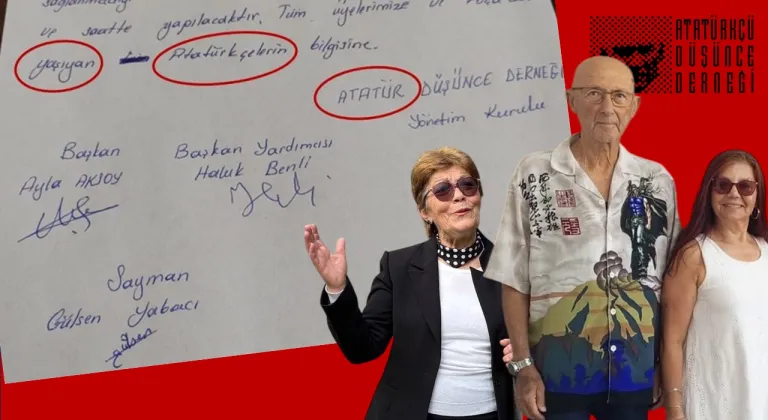 ve saatte yapılacaktır. Tüm üyelerimize ve
yaşıyan Atatürkçelerin bilgisine.
ATATÜR DÜŞÜNCE DERNEĞİ
Yönetim Kurulu
Başkan
Ayla AKSOY
Başkan Yardıması
Haluk Benli
Sayman
Gülsen Yabacı
ATATÜRKÇÜ
DÜŞÜNCE
DERNEĞİ